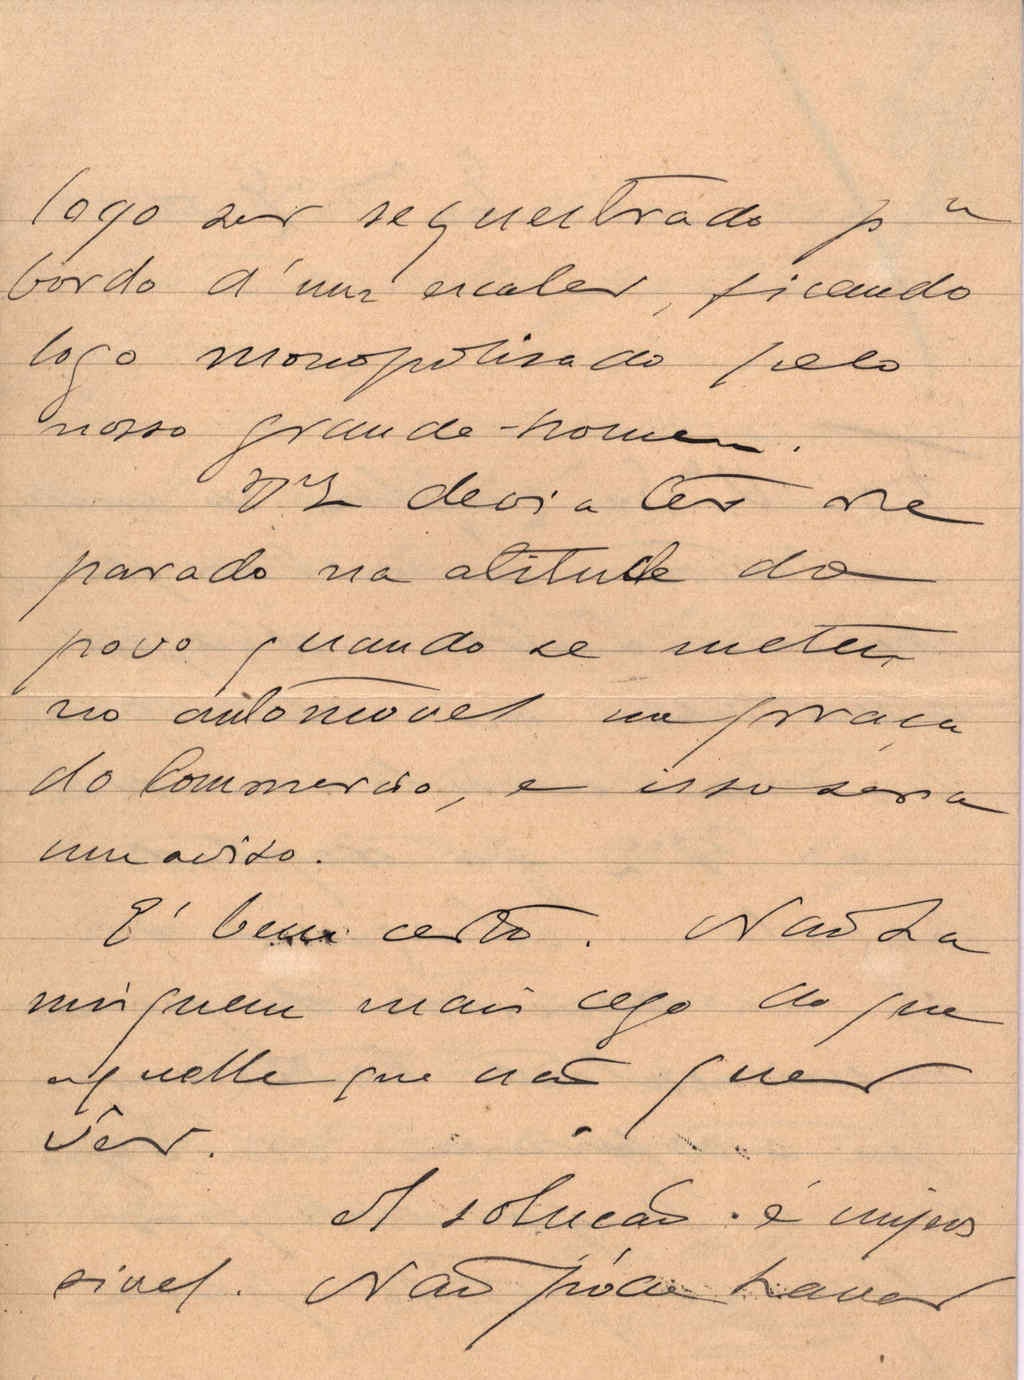 logo ser sequestrado pª
bordo d'um escaler, ficando
logo monopolisado pelo
nosso grande-homem.
devia têr re
parado na atitude do
povo quando se meteu
no automovel na praça
do Commercio, e isso seria
um aviso.
E' bem certo. Não ha
ninguem mais cego do que
aquelle que não quer
vêr.
A solução é impos
sivel. Não póde haver